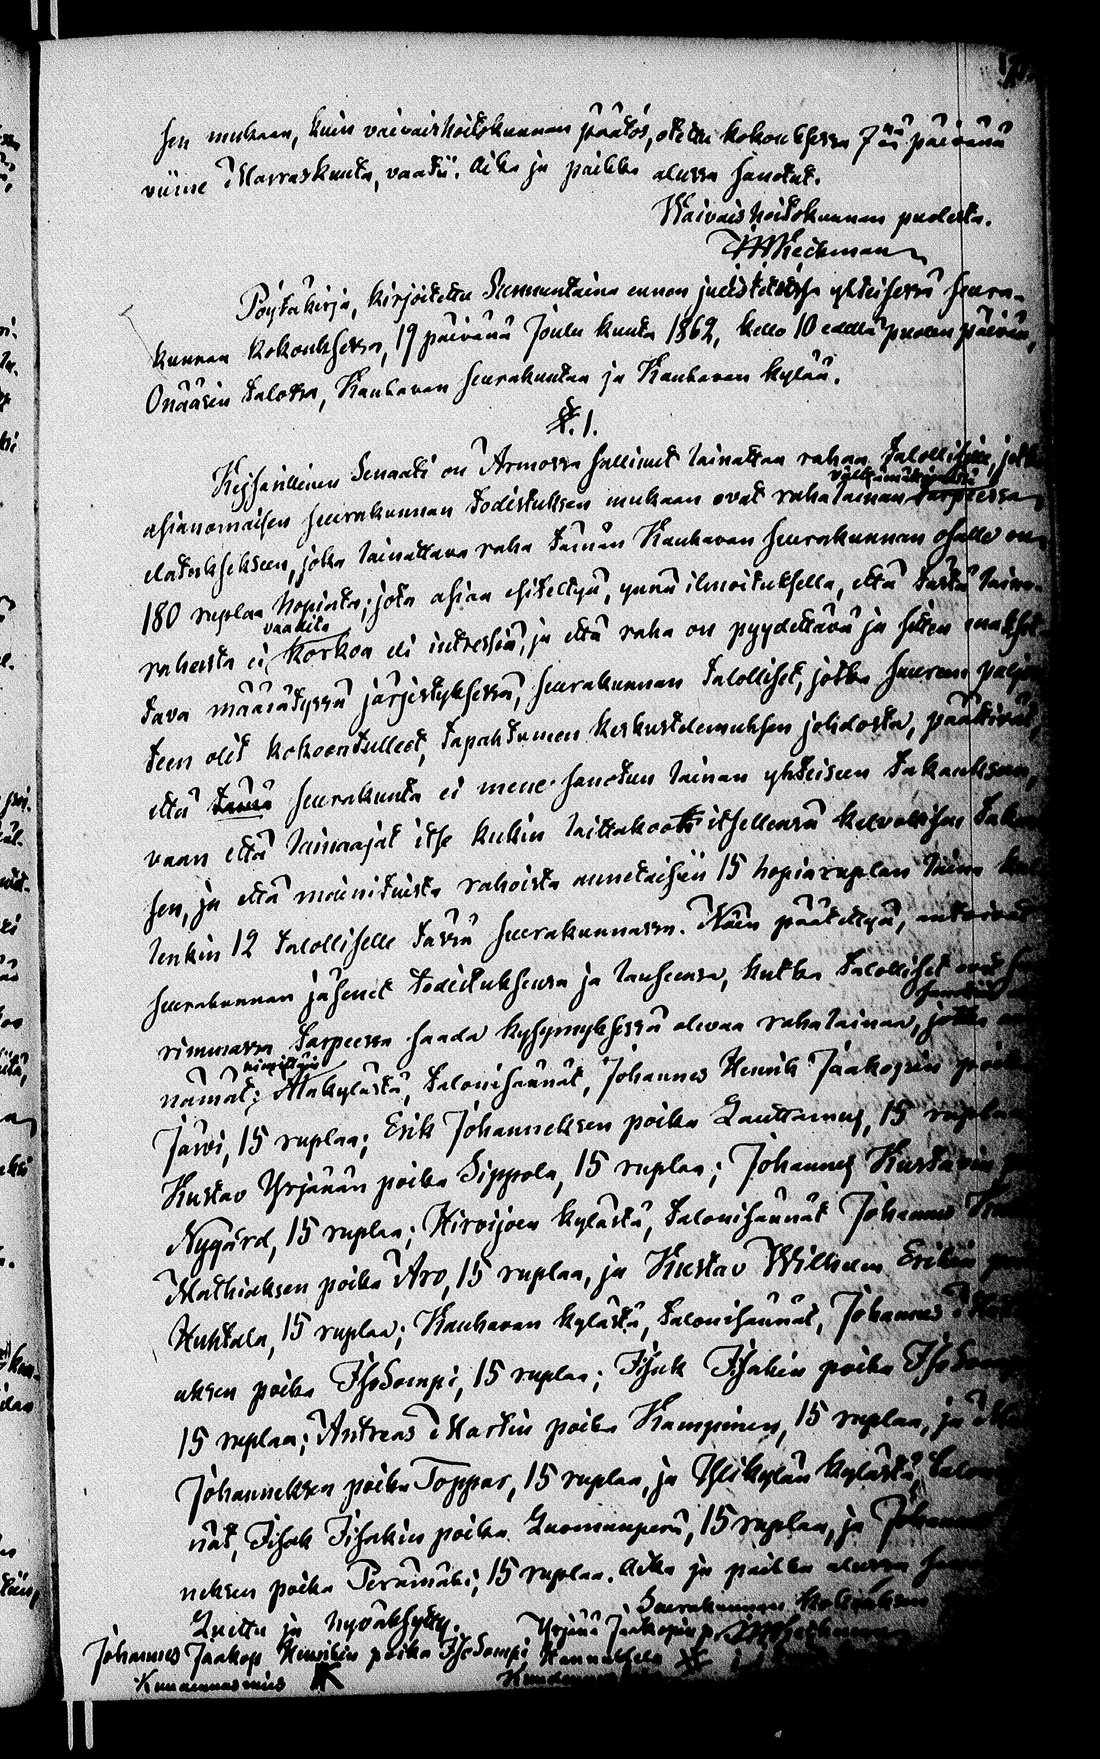 sen mukaan, kuin vaivaishoitokunnan päätös, otettu kokouksessa 7nä päivänä
viime Marraskuuta, vaatii. Aika ja paikka alussa sanotut.
Waivaishoitokunnan puolesta.
Pöytäkirja, kirjoitettu Sunnuntaina ennen yhteisessä seura-
kunnan kokouksessa, 19 päivänä Joulu kuuta 1862, kello 10 edellä puolen päivän,
Onääsin talossa, Kauhavan seurakuntaa ja Kauhavan kylää.
§. 1.
Kejsarillinen Senaati on Armossa sallinut lainattaa rahaa talollisille, jotka
välttämättömästi
asianomaisen seurakunnan todistuksen mukaan ovat raha lainan tarpeessa
elatukseksen, joka lainattava raha tämän Kauhavan seurakunnan osalle on
180 ruplaa hopiata; jota asiaa esiteltyä, ynnä ilmoituksella, että tästä laina-
vaadita
rahasta ei korkoa eli intressiä, ja että raha on pyydettävä ja sitten makset-
tava määrätyssä järjestyksessä, seurakunnan talolliset, jotka suuren paljou-
teen olit kokoontulleet, tapahtuneen keskustelemuksen johdosta, päättivät,
että tämä seurakunta ei mene sanotun lainan yhteiseen takaukseen,
vaan että lainaajat itse kukin laittakoot itsellensä kelvollisen takau-
sen, ja että mainituista rahoista annetaisiin 15 hopiaruplan laina kul-
lenkin 12 talolliselle tässä seurakunnassa. Näin päätettyä, antoivat
seurakunnan jäsenet todistuksensa ja lauseensa, kutka talolliset ovat suu-
rimmassa tarpeessa saada kysymyksessä olevaa rahalainaa, jotka
nimittäin
nämät; Alakylästä, talonisännät, Johannes Henrik Jaakopin poika
Järvi, 15 ruplaa; Erik Johanneksen poika Lauttamus, 15 ruplaa
Kustav Yrjänän poika Sippola, 15 ruplaa; Johannes Kustavin
Nygård, 15 ruplaa; Hirvijoen kylästä, talonisännät Johannes
Mathiaksen poika Aro, 15 ruplaa, ja Kustav Wilhelm Erikin
Huhtala, 15 ruplaa; Kauhavan kylästä, talonisännät, Johannes
aksen poika IsoSompi, 15 ruplaa; Isak Isakin poika IsoSompi
15 ruplaa; Antreas Martin poika Kamppinen, 15 ruplaa, ja
Johanneksen poika Toppar, 15 ruplaa, ja Ylikylän kylästä, taloni-
nät, Isak Isakin poika Luomanperä, 15 ruplaa, ja Johannes
neksen poika Perämäki, 15 ruplaa. Aika ja paikka alussa
Seurakunnan
Luettu ja hyväksytty.
Johannes Jaakop Henrikin poika IsoSompi Yrjänä Jaakopin p.
Kunnanmies